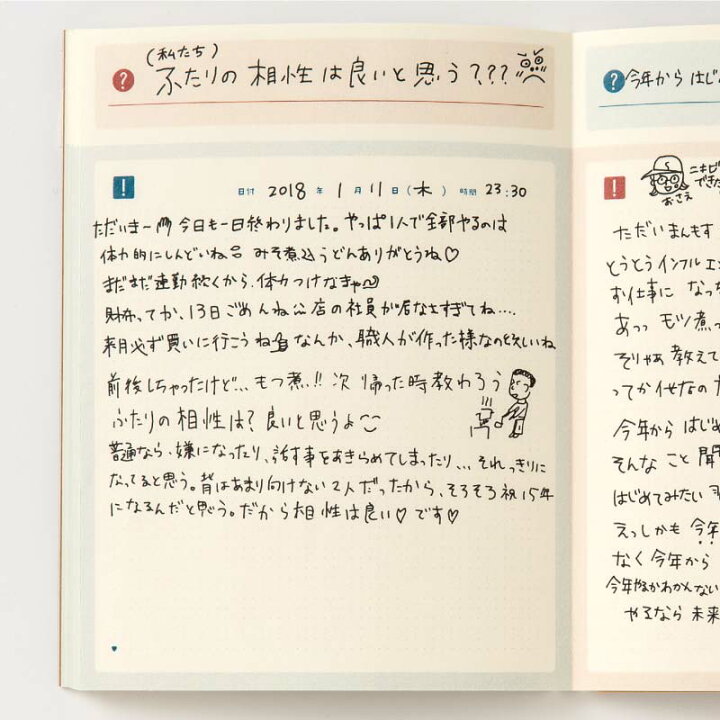 (私たち)
? ふたりの相性は良いと思う???
! 日付 2018年 1月 11日(木) 時間 23:30
ただいまー 今日も一日終わりました。やっぱ1人で全部やるのは
体力的にしんどいね みそ煮込うどんありがとうね♡
まだまだ連勤続くから、体力つけなきゃ
財布ってか、13日ごめんね 店の社員が居なさすぎてね....
来月必ず買いに行こうね なんか、職人が作った様なのが欲しいね
前後しちゃったけど... もつ煮!! 次帰った時教わろう
ふたりの相性は? 良いと思うよ
普通なら、嫌になったり、話す事をあきらめてしまったり... それっきりに
なってると思う。背はあまり向けない2人だったから、そろそろ祝15年
になるんだと思う。だから相性は良い♡です♡
? 今年からはじ
! ニキビ
できた
おさえ
ただいまんもす
とうとうインフルエン
す仕事に なっち
あっっ モツ煮っ
そりゃあ教えて
ってか 仕なの
今年からはじめ
そんなこと 聞
はじめてみたい
えっしかも 今年
なく 今年から
今年やるかわかんない
やるなら 未来